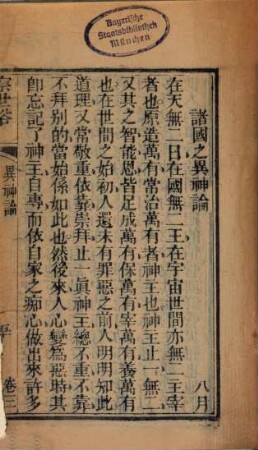 Bayerische
Staatsbibliothek
München
諸國之異神論
八月
在天無二日在國無二王在宇宙世間亦無二主宰
者也原造萬有常治萬有者神王也神王止一無二
又其之智能恩皆足成萬有保萬有宰萬有養萬有
也在世間之始初人還未有罪惡之前人明明知此
道理又常敬重依靠崇拜止一眞神王總不重不靠
不拜别的當始係如此也然後來人心變爲惡時其
卽忘記了神王自專而依自家之痴心做出來許多
察世俗
異神論
卷三